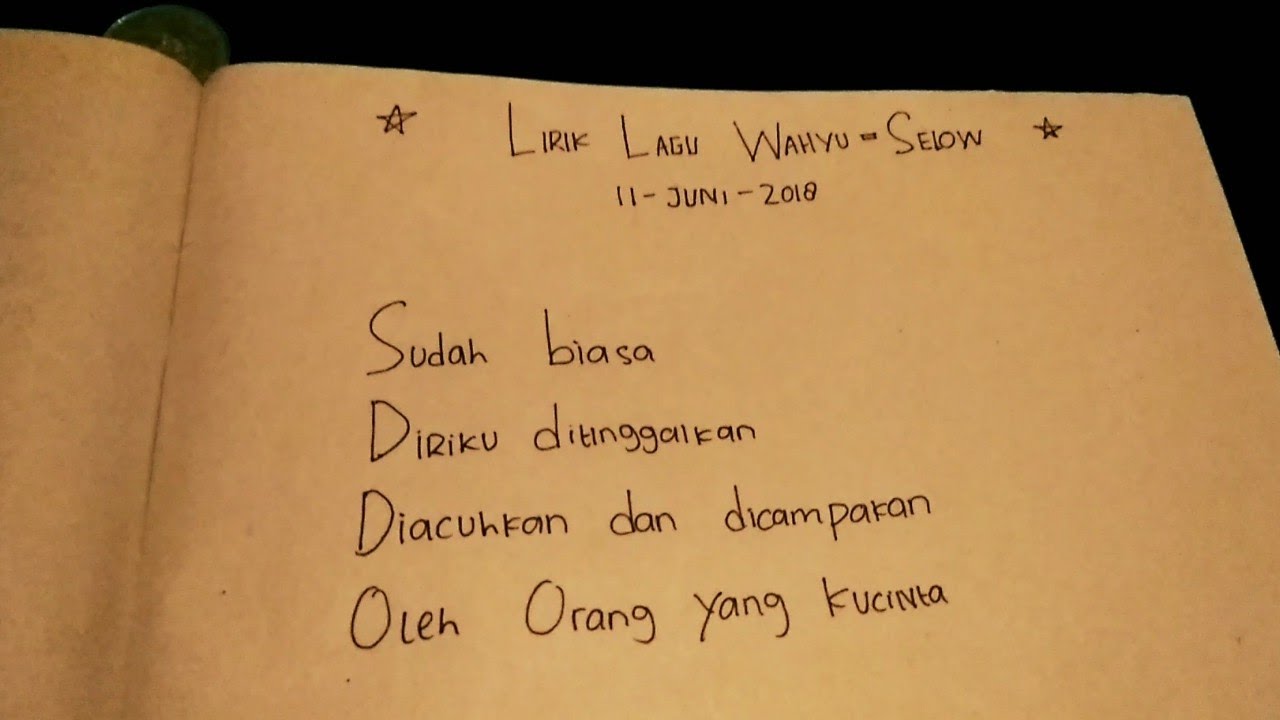 ☆ LIRIK LAGU WAHYU = SELOW ☆
11-JUNI-2018
Sudah biasa
DIRIKU ditinggalkan
Diacuhkan dan dicampakan
Oleh Orang yang kucinta